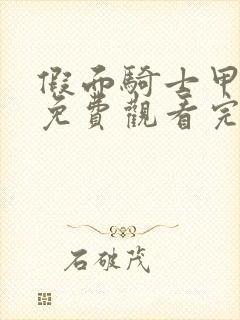 假面騎士甲
免費觀看完
石破茂